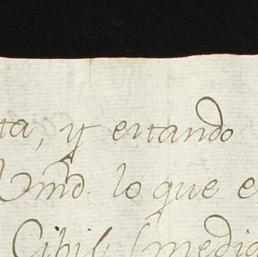 ta, y estando
Vmd. lo que e
Cibil, medio